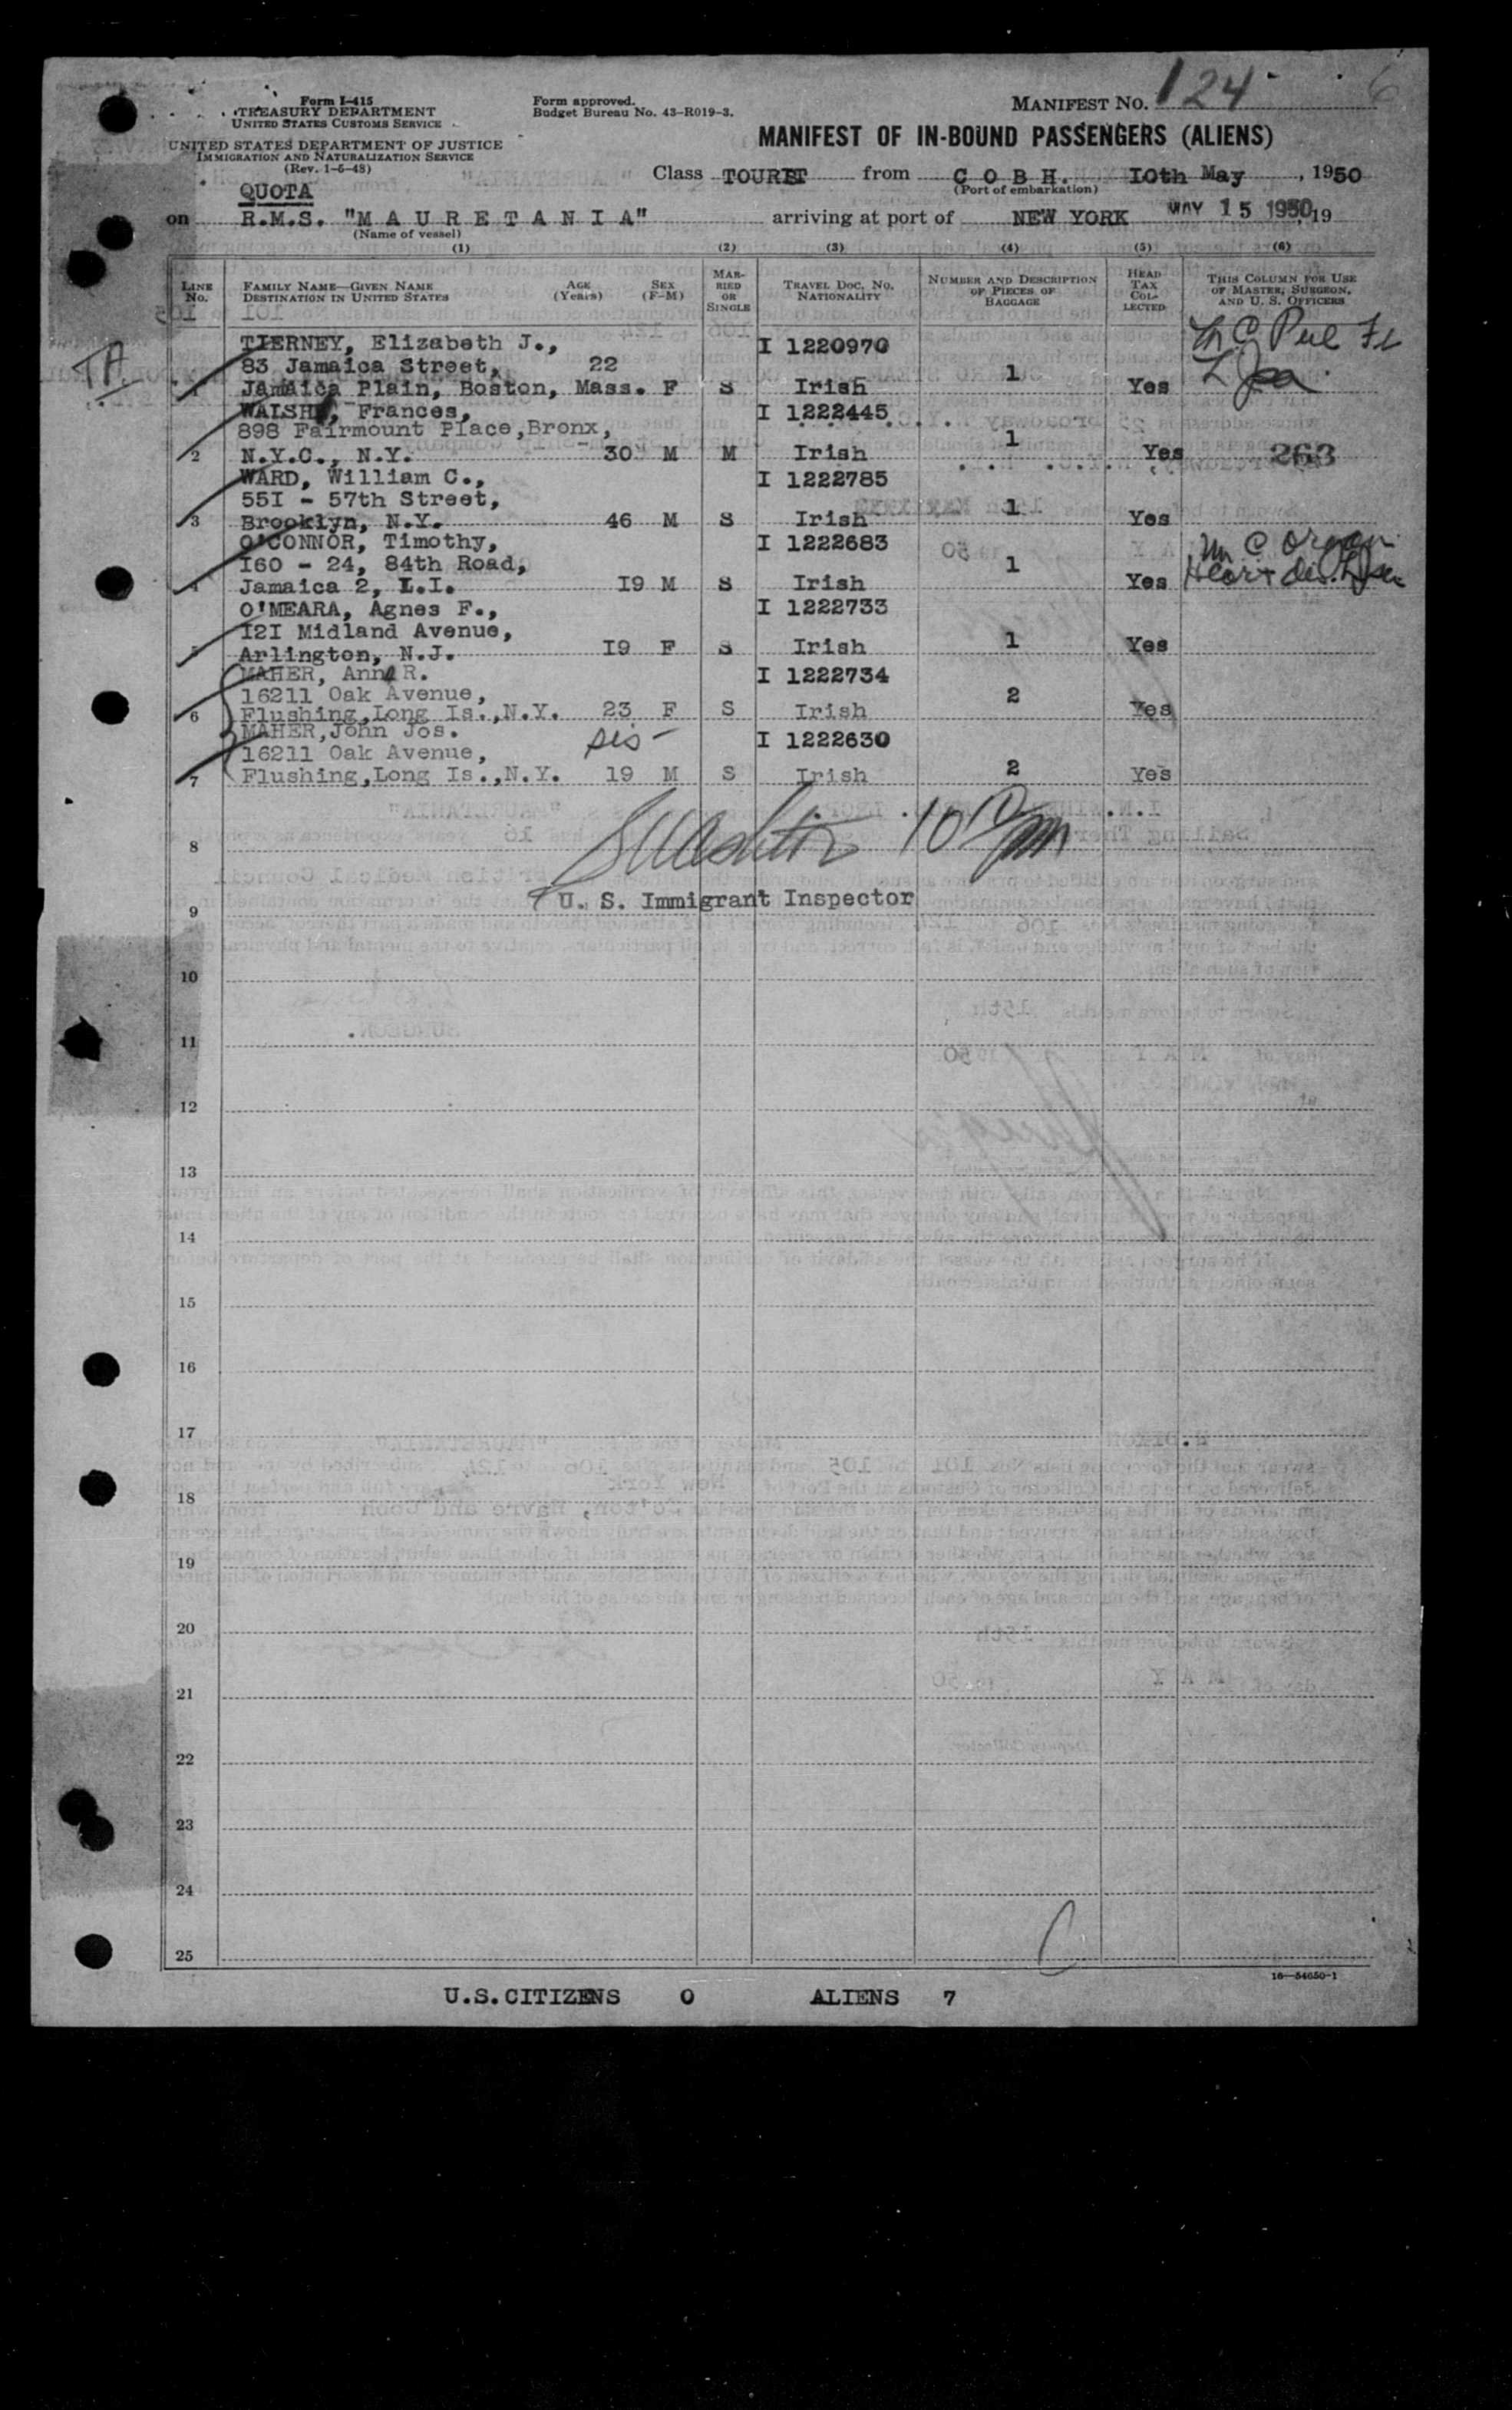 Form I-415
TREASURY DEPARTMENT
UNITED STATES CUSTOMS SERVICE
UNITED STATES DEPARTMENT OF JUSTICE
IMMIGRATION AND NATURALIZATION SERVICE
(Rev. 1-6-48)
Form approved.
Budget Bureau No. 43-R019-3.
MANIFEST NO. 124
6
MANIFEST OF IN-BOUND PASSENGERS (ALIENS)
QUOTA
Class TOURIST from C O B H. 10th May, 1950
(Port of embarkation)
on R.M.S. "M A U R E T A N I A" arriving at port of NEW YORK MAY 15 1950, 19
(Name of vessel)
(1) (2) (3) (4) (5) (6)
LINE NO. FAMILY NAME—GIVEN NAME DESTINATION IN UNITED STATES AGE (Years) SEX (F-M) MARRIED OR SINGLE TRAVEL DOC. NO. NATIONALITY NUMBER AND DESCRIPTION OF PIECES OF BAGGAGE HEAD TAX COLLECTED THIS COLUMN FOR USE OF MASTER, SURGEON, AND U. S. OFFICERS
TIERNEY, Elizabeth J., I 1220970
83 Jamaica Street, 22 1
1 Jamaica Plain, Boston, Mass. F S Irish Yes
WALSH, Frances, I 1222445
898 Fairmount Place, Bronx, 1
2 N.Y.C., N.Y. 30 M M Irish Yes 263
WARD, William C., I 1222785
55I - 57th Street, 1
3 Brooklyn, N.Y. 46 M S Irish Yes
O'CONNOR, Timothy, I 1222683
I60 - 24, 84th Road, 1
4 Jamaica 2, L.I. I9 M S Irish Yes
O'MEARA, Agnes F., I 1222733
I2I Midland Avenue, 1
5 Arlington, N.J. I9 F S Irish Yes
MAHER, Ann R. I 1222734
16211 Oak Avenue, 2
6 Flushing, Long Is., N.Y. 23 F S Irish Yes
MAHER, John Jos. sis- I 1222630
16211 Oak Avenue, 2
7 Flushing, Long Is., N.Y. 19 M S Irish Yes
8
U. S. Immigrant Inspector
9
10
11
12
13
14
15
16
17
18
19
20
21
22
23
24
25
16—54650-1
U.S.CITIZENS 0 ALIENS 7